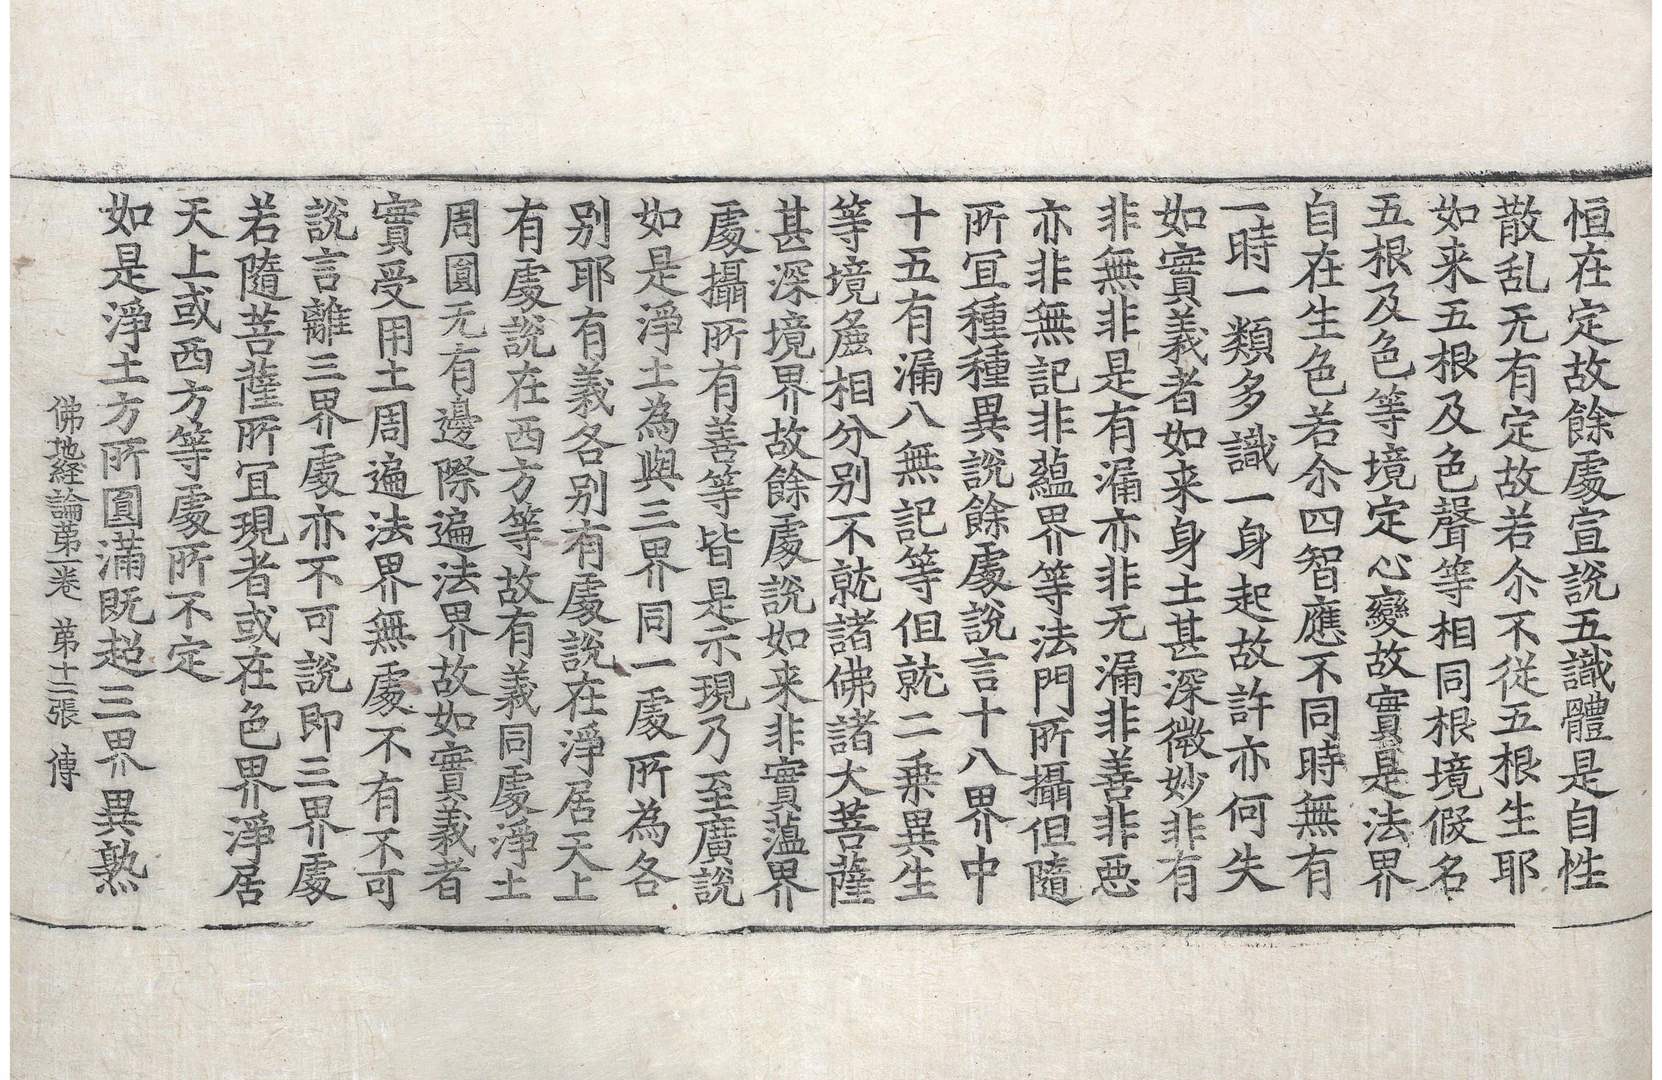 恒在定故餘處宣說五識體是自性
散乱无有定故若尒不從五根生耶
如来五根及色聲等相同根境假名
五根及色等境定心變故實是法界
自在生色若尒四智應不同時無有
一時一類多識一身起故許亦何失
如實義者如来身土甚深微妙非有
非無非是有漏亦非无漏非善非惡
亦非無記非蘊界等法門所攝但隨
所冝種種異說餘處說言十八界中
十五有漏八無記等但就二乗異生
等境麁相分別不就諸佛諸大菩薩
甚深境界故餘處說如来非實蕰界
處攝所有善等皆是示現乃至廣說
如是淨土為與三界同一處所為各
別耶有義各別有處說在淨居天上
有處說在西方等故有義同處淨土
周圓无有邊際遍法界故如實義者
實受用土周遍法界無處不有不可
說言離三界處亦不可說即三界處
若隨菩薩所冝現者或在色界淨居
天上或西方等處所不定
如是淨土方所圓滿既超三界異熟
佛地経論苐一卷 苐十二張 傳